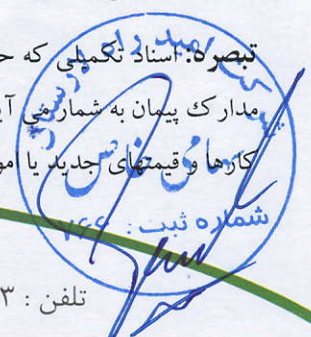 تبصره: اسناد تکمیلی که ح
مدارک پیمان به شمار می آی
کارها و قیمتهای جدید یا امو
سهامی خاص
شماره ثبت: ۷۶۶
تلفن : ۳